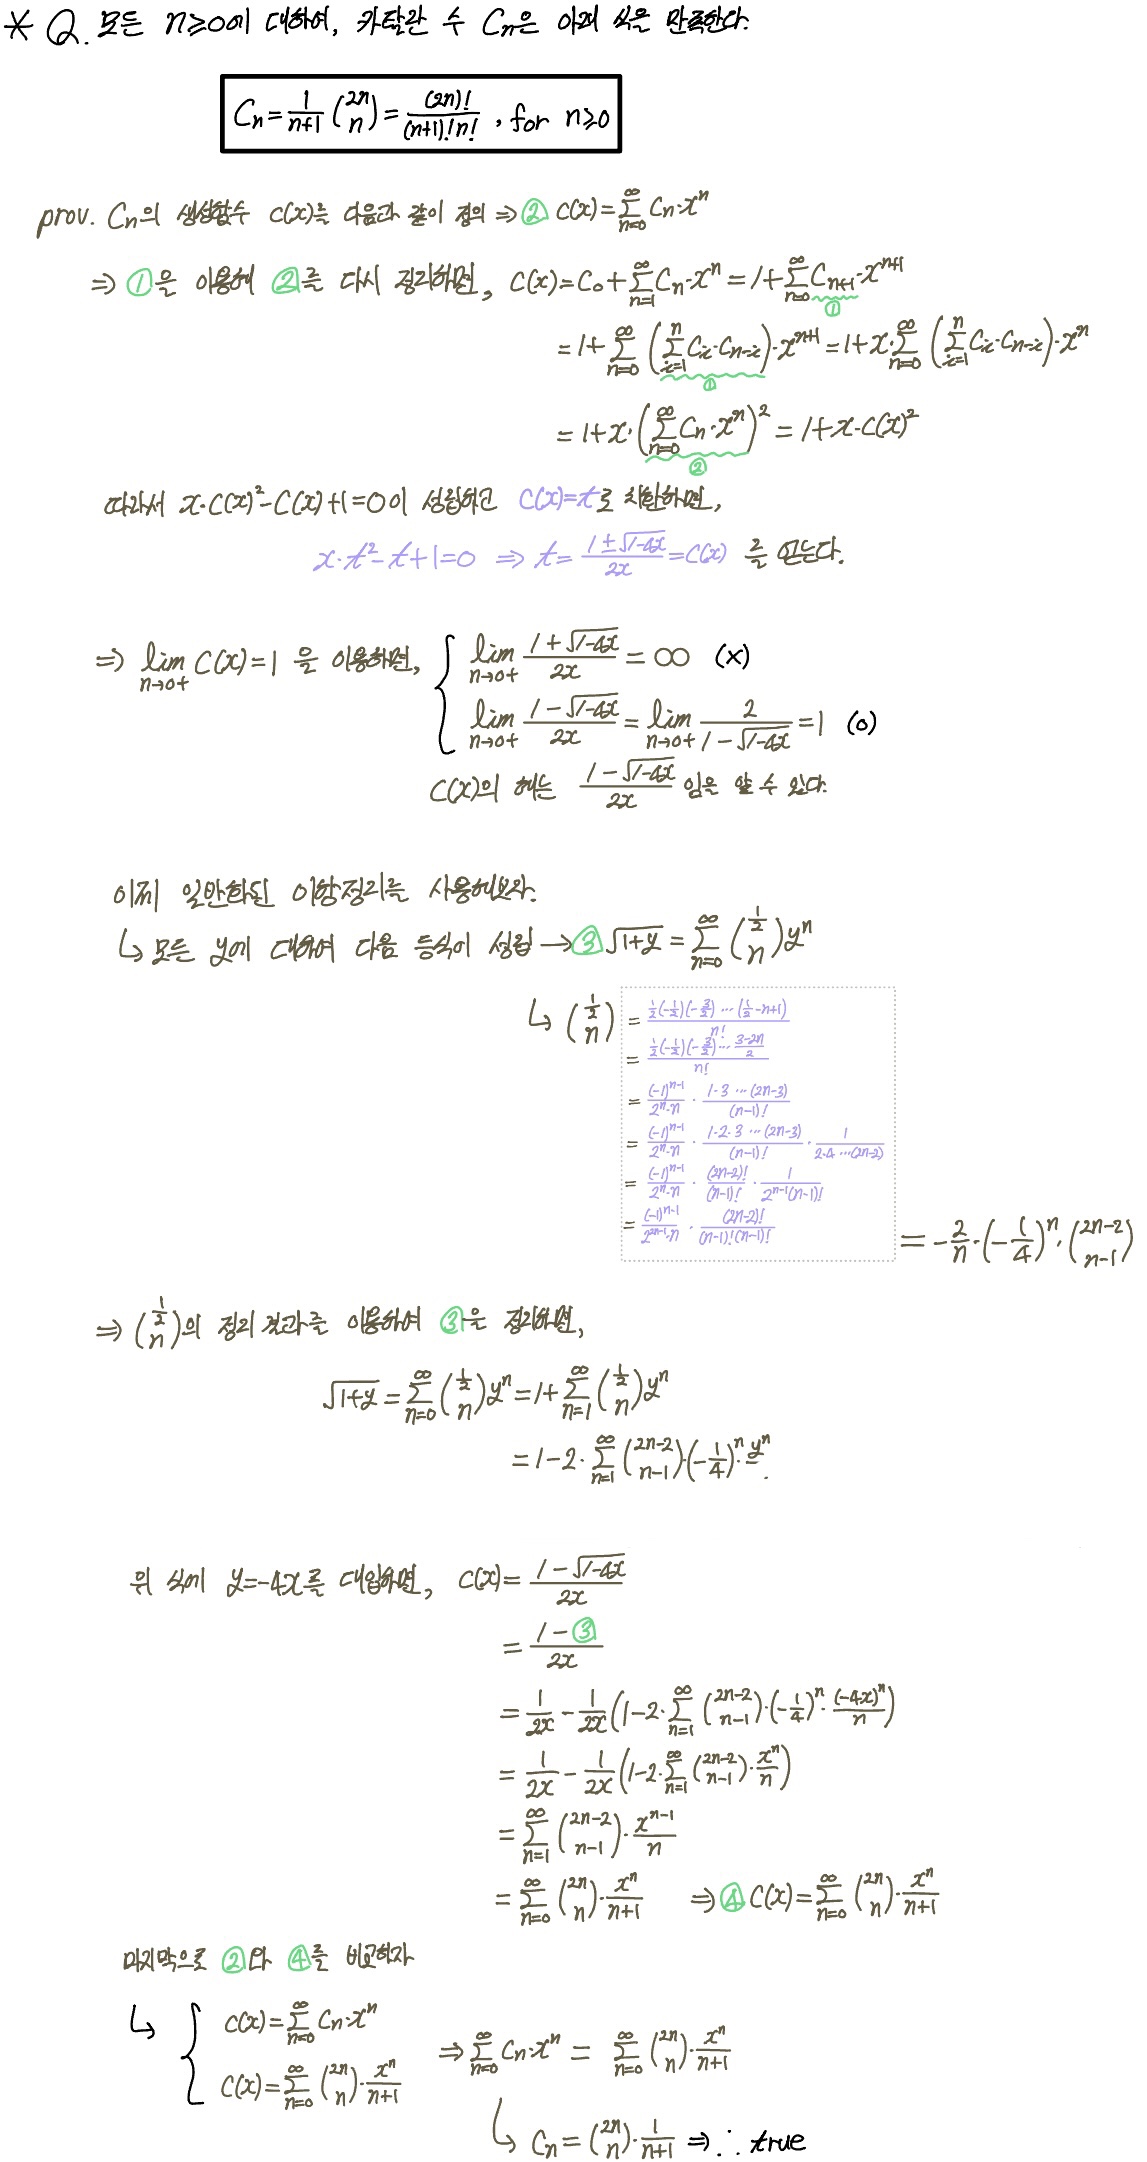 * Q. 모든 n≥0에 대하여, 카탈란 수 Cₙ은 아래 식을 만족한다.
Cₙ = \frac{1}{n+1} \binom{2n}{n} = \frac{(2n)!}{(n+1)!n!}, for n≥0
prov. Cₙ의 생성함수 C(x)를 다음과 같이 정의 ⇒ ② C(x) = \sum_{n=0}^{∞} Cₙ·xⁿ
⇒ ①을 이용해 ②를 다시 정리하면, C(x) = C₀ + \sum_{n=1}^{∞} Cₙ·xⁿ = 1 + \sum_{n=0}^{∞} C_{n+1}·x^{n+1}
①
= 1 + \sum_{n=0}^{∞} (\sum_{i=1}^{n} C_i·C_{n-i})·x^{n+1} = 1 + x·\sum_{n=0}^{∞} (\sum_{i=1}^{n} C_i·C_{n-i})·xⁿ
①
= 1 + x·(\sum_{n=0}^{∞} Cₙ·xⁿ)² = 1 + x·C(x)²
②
따라서 x·C(x)² - C(x) + 1 = 0이 성립하고 C(x) = t로 치환하면,
x·t² - t + 1 = 0 ⇒ t = \frac{1±\sqrt{1-4x}}{2x} = C(x) 를 얻는다.
⇒ \lim_{n→0+} C(x) = 1 을 이용하면, { \lim_{n→0+} \frac{1+\sqrt{1-4x}}{2x} = ∞ (x)
\lim_{n→0+} \frac{1-\sqrt{1-4x}}{2x} = \lim_{n→0+} \frac{2}{1-\sqrt{1-4x}} = 1 (o)
C(x)의 해는 \frac{1-\sqrt{1-4x}}{2x} 임을 알 수 있다.
이제 일반화된 이항정리를 사용해보자.
↳ 모든 y에 대하여 다음 등식이 성립 → ③ \sqrt{1+y} = \sum_{n=0}^{∞} \binom{\frac{1}{2}}{n} yⁿ
↳ \binom{\frac{1}{2}}{n} = \frac{\frac{1}{2}(-\frac{1}{2})(-\frac{3}{2}) ⋯ (\frac{1}{2}-n+1)}{n!}
= \frac{\frac{1}{2}(-\frac{1}{2})(-\frac{3}{2}) ⋯ \frac{3-2n}{2}}{n!}
= \frac{(-1)^{n-1}}{2ⁿ·n} · \frac{1·3 ⋯ (2n-3)}{(n-1)!}
= \frac{(-1)^{n-1}}{2ⁿ·n} · \frac{1·2·3 ⋯ (2n-3)}{(n-1)!} · \frac{1}{2·4 ⋯ (2n-2)}
= \frac{(-1)^{n-1}}{2ⁿ·n} · \frac{(2n-2)!}{(n-1)!} · \frac{1}{2^{n-1}(n-1)!}
= \frac{(-1)^{n-1}}{2^{2n-1}·n} · \frac{(2n-2)!}{(n-1)!(n-1)!} = -\frac{2}{n}·(-\frac{1}{4})ⁿ·\binom{2n-2}{n-1}
⇒ \binom{\frac{1}{2}}{n}의 정리 결과를 이용하여 ③을 정리하면,
\sqrt{1+y} = \sum_{n=0}^{∞} \binom{\frac{1}{2}}{n} yⁿ = 1 + \sum_{n=1}^{∞} \binom{\frac{1}{2}}{n} yⁿ
= 1 - 2·\sum_{n=1}^{∞} \binom{2n-2}{n-1}·(-\frac{1}{4})ⁿ·yⁿ
위 식에 y=-4x를 대입하면, C(x) = \frac{1-\sqrt{1-4x}}{2x}
= \frac{1-③}{2x}
= \frac{1}{2x} - \frac{1}{2x}(1-2·\sum_{n=1}^{∞} \binom{2n-2}{n-1}·(-\frac{1}{4})ⁿ·\frac{(-4x)ⁿ}{n})
= \frac{1}{2x} - \frac{1}{2x}(1-2·\sum_{n=1}^{∞} \binom{2n-2}{n-1}·\frac{xⁿ}{n})
= \sum_{n=1}^{∞} \binom{2n-2}{n-1}·\frac{x^{n-1}}{n}
= \sum_{n=0}^{∞} \binom{2n}{n}·\frac{xⁿ}{n+1} ⇒ ④ C(x) = \sum_{n=0}^{∞} \binom{2n}{n}·\frac{xⁿ}{n+1}
마지막으로 ②와 ④를 비교하자
↳ { C(x) = \sum_{n=0}^{∞} Cₙ·xⁿ
C(x) = \sum_{n=0}^{∞} \binom{2n}{n}·\frac{xⁿ}{n+1}
⇒ \sum_{n=0}^{∞} Cₙ·xⁿ = \sum_{n=0}^{∞} \binom{2n}{n}·\frac{xⁿ}{n+1}
↳ Cₙ = \binom{2n}{n}·\frac{1}{n+1} ⇒ ∴ true